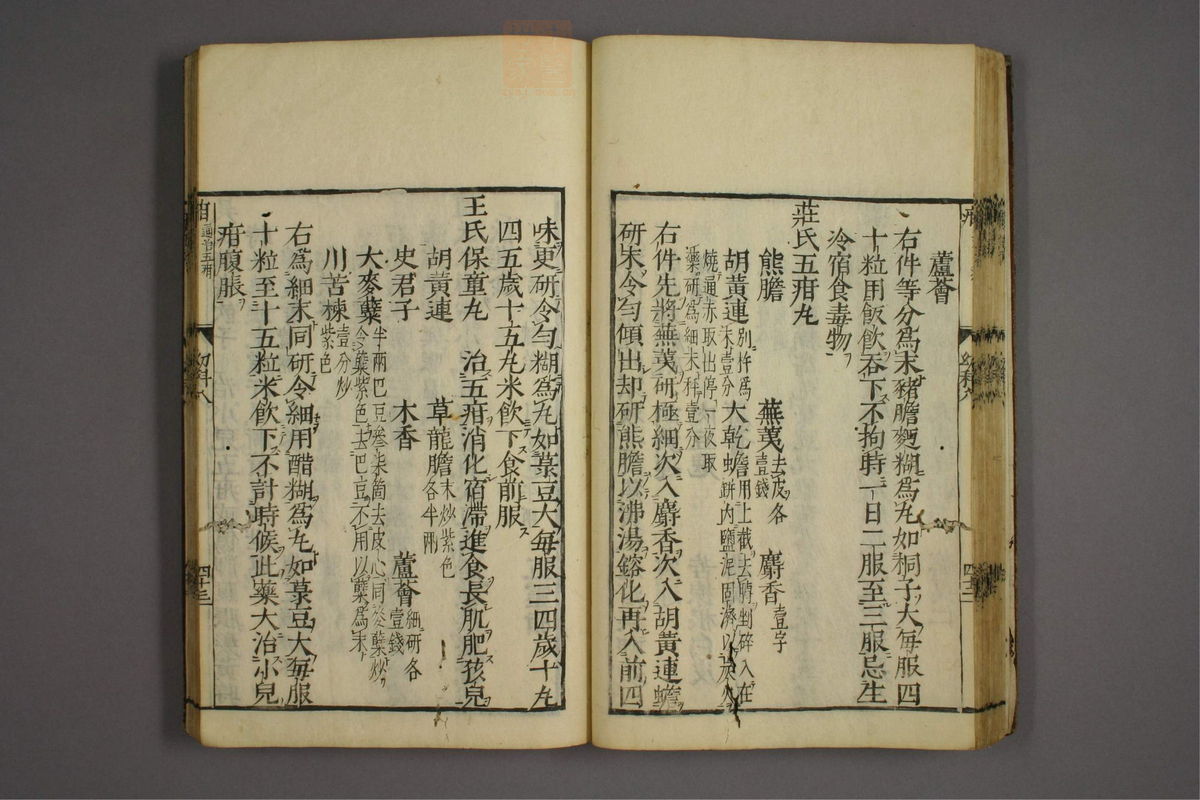 蘆薈
右件等分為末豬膽麪糊為丸如桐子大每服四
十粒用飯飲吞下不拘時一日二服至三服忌生
冷宿食毒物
莊氏五疳丸
熊膽 蕪荑去皮各壹錢 麝香壹字
胡黃連別杵為末壹分 大乾蟾用上截去腈剉碎入在缾內鹽泥固濟以炭火
燒通赤取出停一夜取藥研為細末秤壹分
右件先將蕪荑研極細次入麝香次入胡黃連蟾
研末令勻傾出却研熊膽以沸湯鎔化再入前四
味更研令勻糊為丸如菉豆大每服三四歲十丸
四五歲十五丸米飲下食前服
王氏保童丸 治五疳消化宿滯進食長肌肥孩兒
胡黃連 草龍膽末炒紫色各半兩
史君子 木香 蘆薈細研各壹錢
大麥糵半兩巴豆叁柒箇去皮心同麥糵炒令糵紫色去巴豆不用以糵為末
川苦楝壹分炒紫色
右為細末同研令細用醋糊為丸如菉豆大每服
十粒至十五粒米飲下不計時候此藥大治小兒
疳腹脹
幼科八
四十三